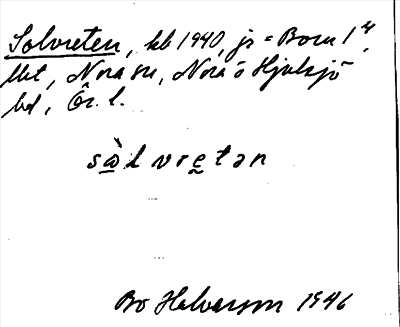 Solvreten, kb 1940, js = Born 1⁴,
llet, Nora sn, Nora o Hjulsjö
bd, Ör. l.
sàlvretən
Bo Halvarson 1946